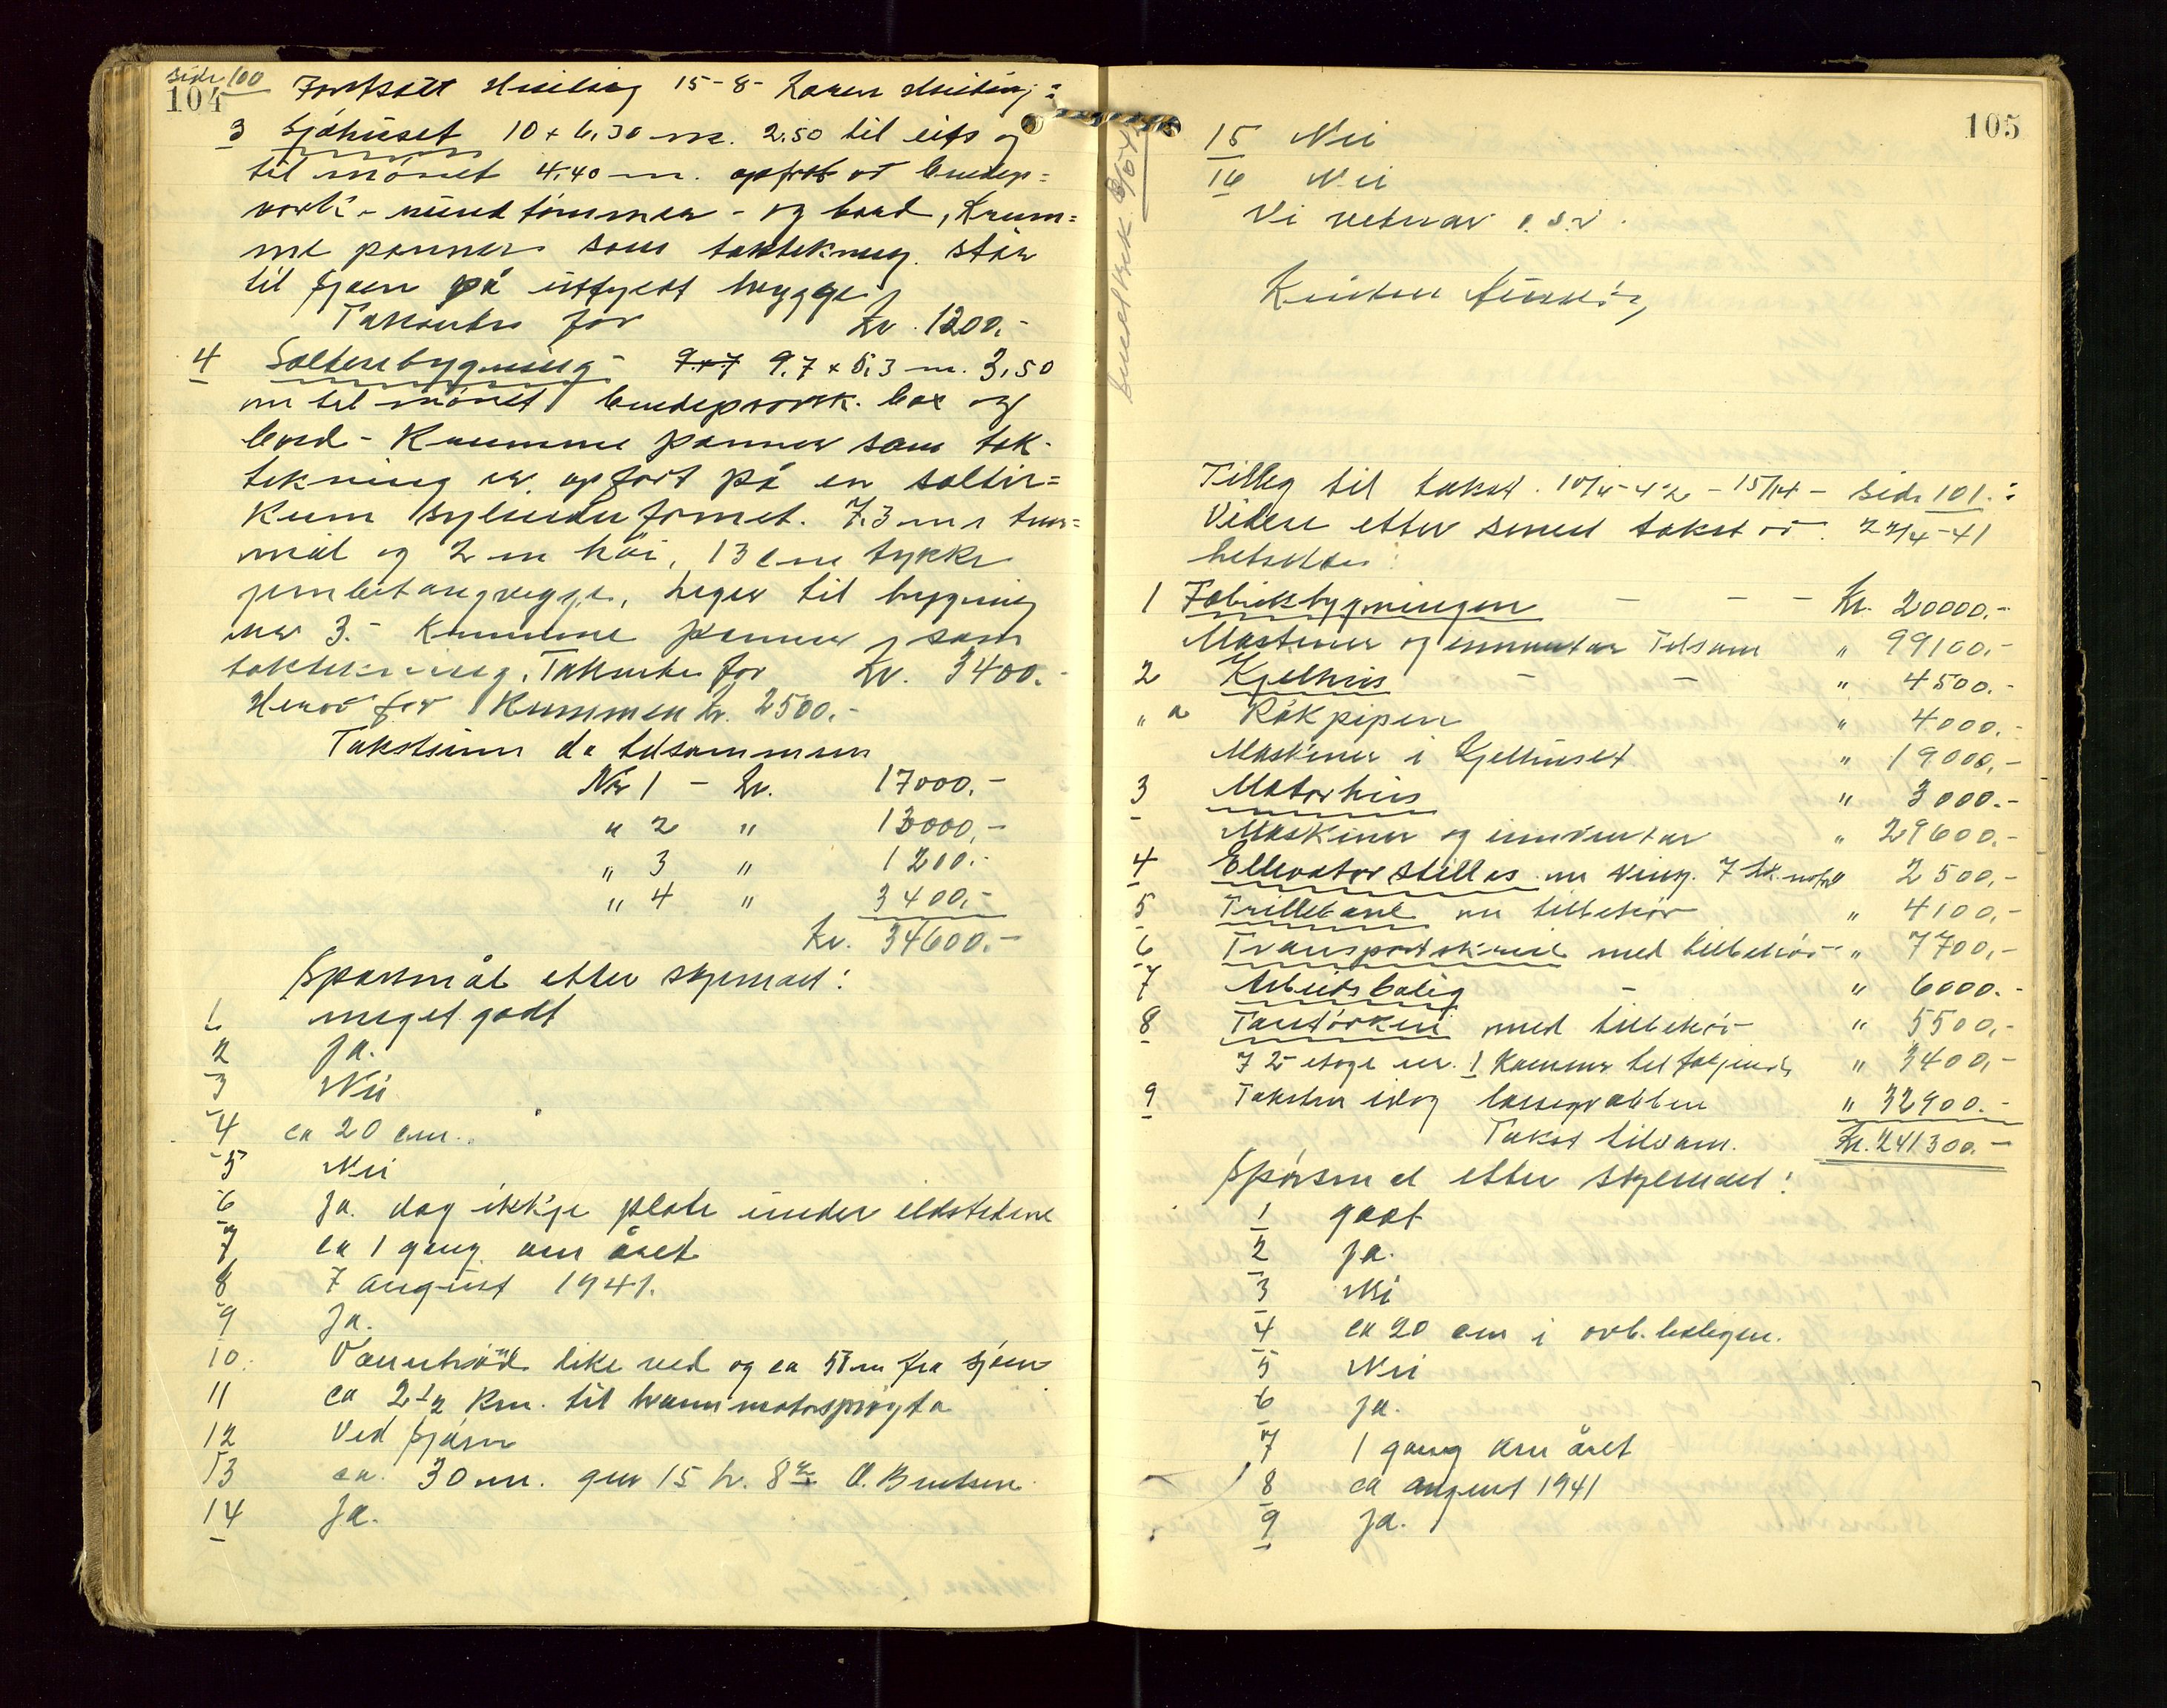 side 100
104 Fortsatt 15-8- Karen
3 Sjøhuset 10 x 6,30 m. 2.50 til eifs og
til mönet 4.40 m. opført av bindings=
verk - rundtömmer - og bord, Krum=
me panner som taktekning. står
til sjøen på utfyllt brygge,
Takseres for Kr. 1200.-
4 Salteribygning - 9x7 9.7 x 5,3 m. 3,50
m til mönet bindingsverk. og
bord - Krumme panner som tak-
tekning er opfört på en saltir=
kum sylinderformet. 7.3 m i tver=
mål og 2 m höi, 13 cm tykke
jernbetongvegge, heger til bygning
nr 3. - Krumme panner som
taktekning. Takseres for Kr. 3400.-
Herav for Kummen Kr. 2500.-
Takstsum da tilsammen
Nr 1 - Kr. 17000.-
" 2 " 13000,-
" 3 " 1200.-
" 4 " 3400,-
Kr. 34600.-
Sporsmål etter skjemaet:
1 meget godt
2 Ja.
3 Nei
4 ca 20 cm.
5 Nei
6 Ja. dog ikkje plate under ildstedene
7 ca 1 gang om året
8 7 august 1941.
9 Ja.
10. Vannbrönd like ved og ca 5 m fra sjøen
11 ca 2 1/2 Km. til brannmotorsprøyta
12 Ved sjøen
13 ca. 30 m. gnr 15 br. 8 O. Bentsen
14 Ja.
105
15 Nei
16 Nei
Vi vitnar o.s.v.
Tillegg til takst. 10/4-42 - 15/14 - side 101.:
Videre etter senest takst av 22/4-41
1 Fabrikbygningen - - - Kr. 20000.-
Maskiner og inventar Tilsam " 99100.-
2 Kjelhus - - " 4500.-
" a Rökpipen " 4000.-
Maskiner i Kjelhuset " 19000.-
3 Motorhus " 3000.-
Maskiner og inventar " 29600.-
4 Ellevatorstillas m ving. 7 hk. motor " 2500.-
5 Trillebane m tilbehör " 4100,-
6 Transportskrue med tilbehör " 7700,-
7 Arbeidsbolig - " 6000.-
8 Tantörkeri med tilbehör " 5500,-
I 2 etage er 1 Kammer " 3400,-
9 Taksten idag " 32900.-
Takst tilsam. Kr. 241300.-
Spörsmål etter skjemaet:
1 godt
2 Ja.
3 Nei
4 ca 20 cm i arb. boligen.
5 Nei
6 Ja.
7 1 gang om året
8 ca august 1941
9 Ja.